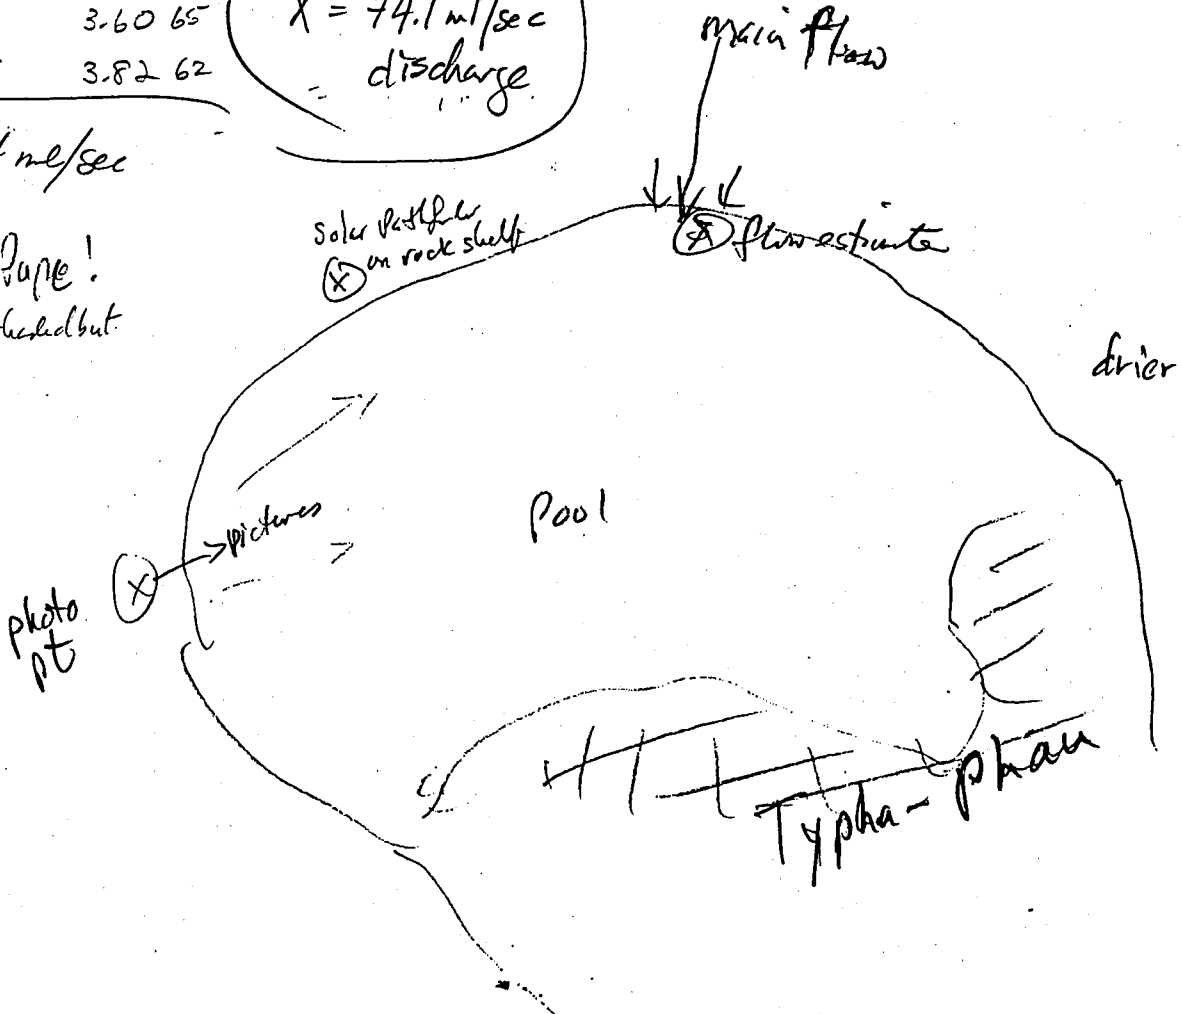 3.60 65
3.82 62
ml/sec
X = 74.1 ml/sec
discharge
main flow
Solar Pathfinder
on rock shelf
X
flow estimate
drier
pictures
Pool
X
photo
pt
Typha - phau